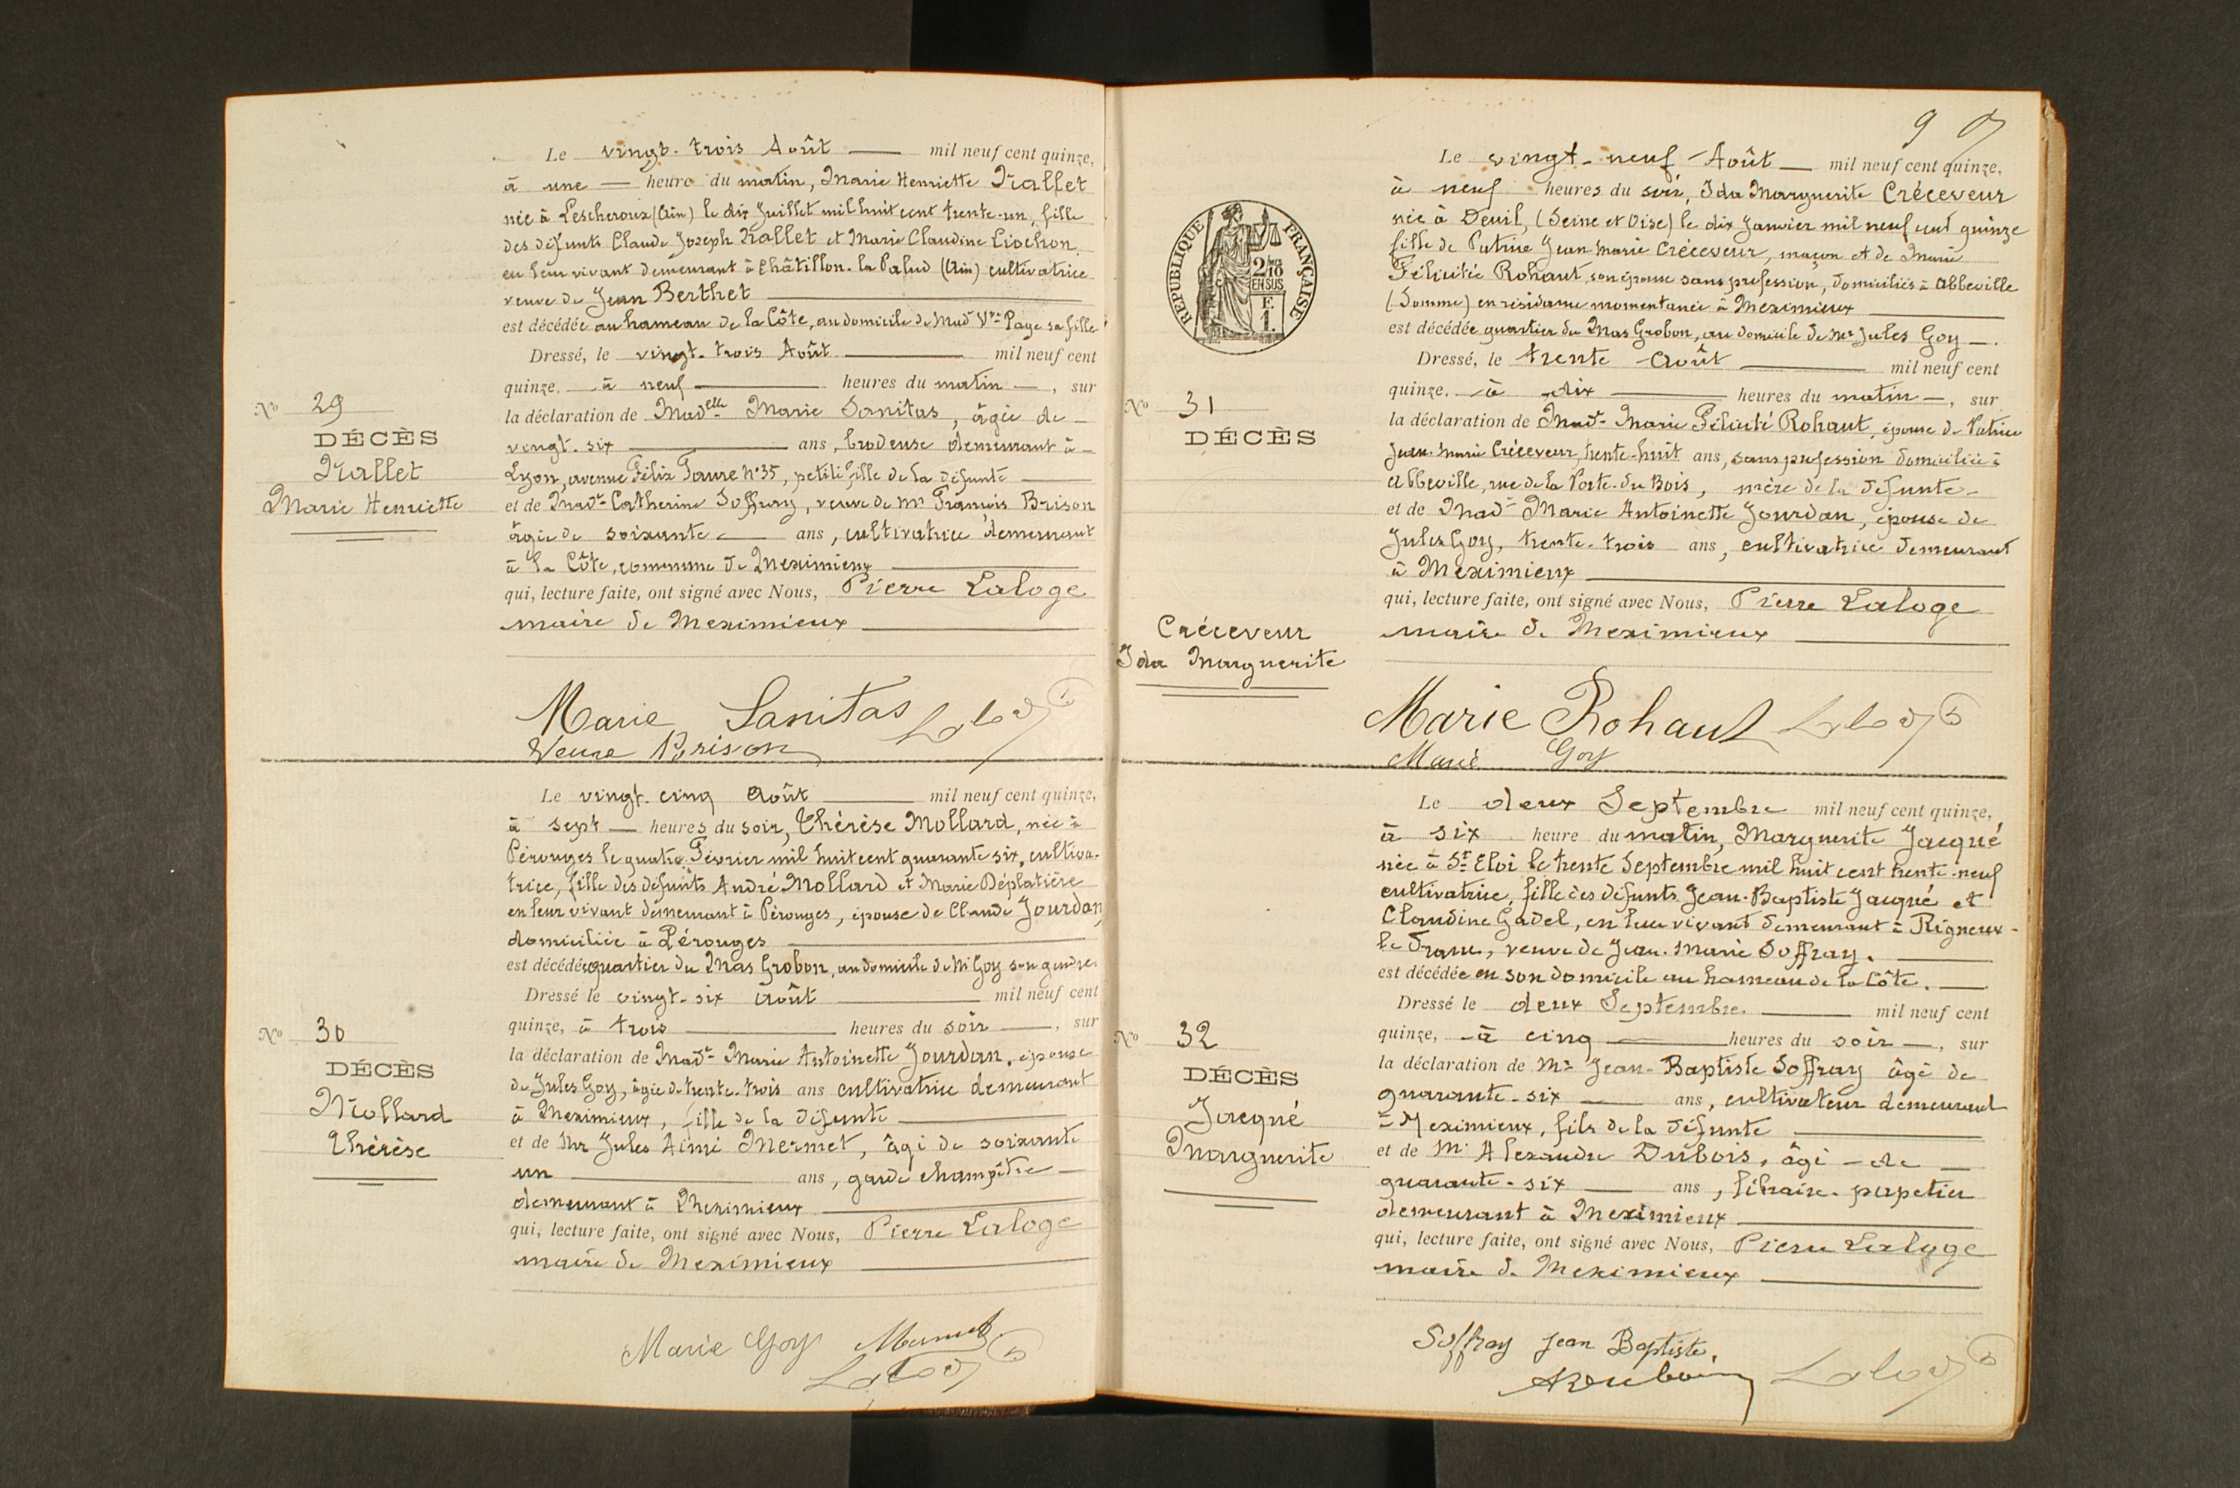 Le vingt-trois Août mil neuf cent quinze,
à une heure du matin, Marie Henriette Nallet
née à Lescheroux (Ain) le dix Juillet mil huit cent trente-un, fille
des défunts Claude Joseph Nallet et Marie Claudine Liochon
en leur vivant demeurant à Châtillon-la Palud (Ain) cultivatrice
veuve de Jean Berthet
est décédée au hameau de la Côte, au domicile de Mad Vve Page sa fille
Dressé, le vingt-trois Août mil neuf cent
quinze, à neuf heures du matin, sur
No 29
la déclaration de Madelle Marie Sanitas, âgée de
DÉCÈS
vingt-six ans, brodeuse demeurant à
Nallet
Lyon, avenue Félix Faure No 35, petite fille de la défunte
Marie Henriette
et de Made Catherine Soffray, veuve de Mr François Brison
âgée de soixante ans, cultivatrice demeurant
à la Côte, commune de Meximieux
qui, lecture faite, ont signé avec Nous, Pierre Laloge
maire de Meximieux
Marie Sanitas Laloge
Veuve Brison
Le vingt-cinq Août mil neuf cent quinze,
à sept heures du soir, Thérèse Mollard, née à
Pérouges le quatre Février mil huit cent quarante six, cultiva-
trice, fille des défunts André Mollard et Marie Déplatière
en leur vivant demeurant à Pérouges, épouse de Claude Jourdan,
domiciliée à Pérouges
est décédée quartier du Mas Grobon, au domicile de Mr Goy son gendre
Dressé le vingt-six Août mil neuf cent
No 30
quinze, à trois heures du soir, sur
DÉCÈS
la déclaration de Made Marie Antoinette Jourdan, épouse
Mollard
de Jules Goy, âgée de trente-trois ans cultivatrice demeurant
Thérèse
à Meximieux, fille de la défunte
et de Mr Jules Aimé Mermet, âgé de soixante
un ans, garde champêtre
demeurant à Meximieux
qui, lecture faite, ont signé avec Nous, Pierre Laloge
maire de Meximieux
Marie Goy Mermet
Laloge
9
RÉPUBLIQUE FRANÇAISE
2/10 EN SUS
F. 1.
Le vingt-neuf Août mil neuf cent quinze,
à neuf heures du soir, Ida Marguerite Créceveur
née à Deuil, (Seine et Oise) le dix Janvier mil neuf cent quinze
fille de Patrice Jean Marie Créceveur, maçon et de Marie
Félicité Rohaut son épouse sans profession, domiciliés à Abbeville
(Somme) en résidence momentanée à Meximieux
est décédée quartier du Mas Grobon, au domicile de Mr Jules Goy.
Dressé, le trente Août mil neuf cent
quinze, à dix heures du matin, sur
No 31
la déclaration de Made Marie Félicité Rohaut, épouse de Patrice
DÉCÈS
Jean-Marie Créceveur, trente-huit ans, sans profession domiciliée à
Abbeville, rue de la Porte-du Bois, mère de la défunte
et de Made Marie Antoinette Jourdan, épouse de
Jules Goy, trente-trois ans, cultivatrice demeurant
à Meximieux
qui, lecture faite, ont signé avec Nous, Pierre Laloge
Créceveur
maire de Meximieux
Ida Marguerite
Marie Rohaut Laloge
Marie Goy
Le deux Septembre mil neuf cent quinze,
à six heure du matin, Marguerite Jacqué
née à St Eloi le trente Septembre mil huit cent trente-neuf
cultivatrice, fille des défunts Jean-Baptiste Jacqué et
Claudine Gadel, en leur vivant demeurant à Rigneux-
le Franc, veuve de Jean-Marie Soffray.
est décédée en son domicile au hameau de la Côte.
Dressé le deux Septembre. mil neuf cent
No 32
quinze, à cinq heures du soir, sur
DÉCÈS
la déclaration de Mr Jean-Baptiste Soffray âgé de
Jacqué
quarante-six ans, cultivateur demeurant
Marguerite
à Meximieux, fils de la défunte
et de Mr Alexandre Dubois, âgé de
quarante-six ans, libraire-papetier
demeurant à Meximieux
qui, lecture faite, ont signé avec Nous, Pierre Laloge
maire de Meximieux
Soffray Jean Baptiste.
ADubois Laloge